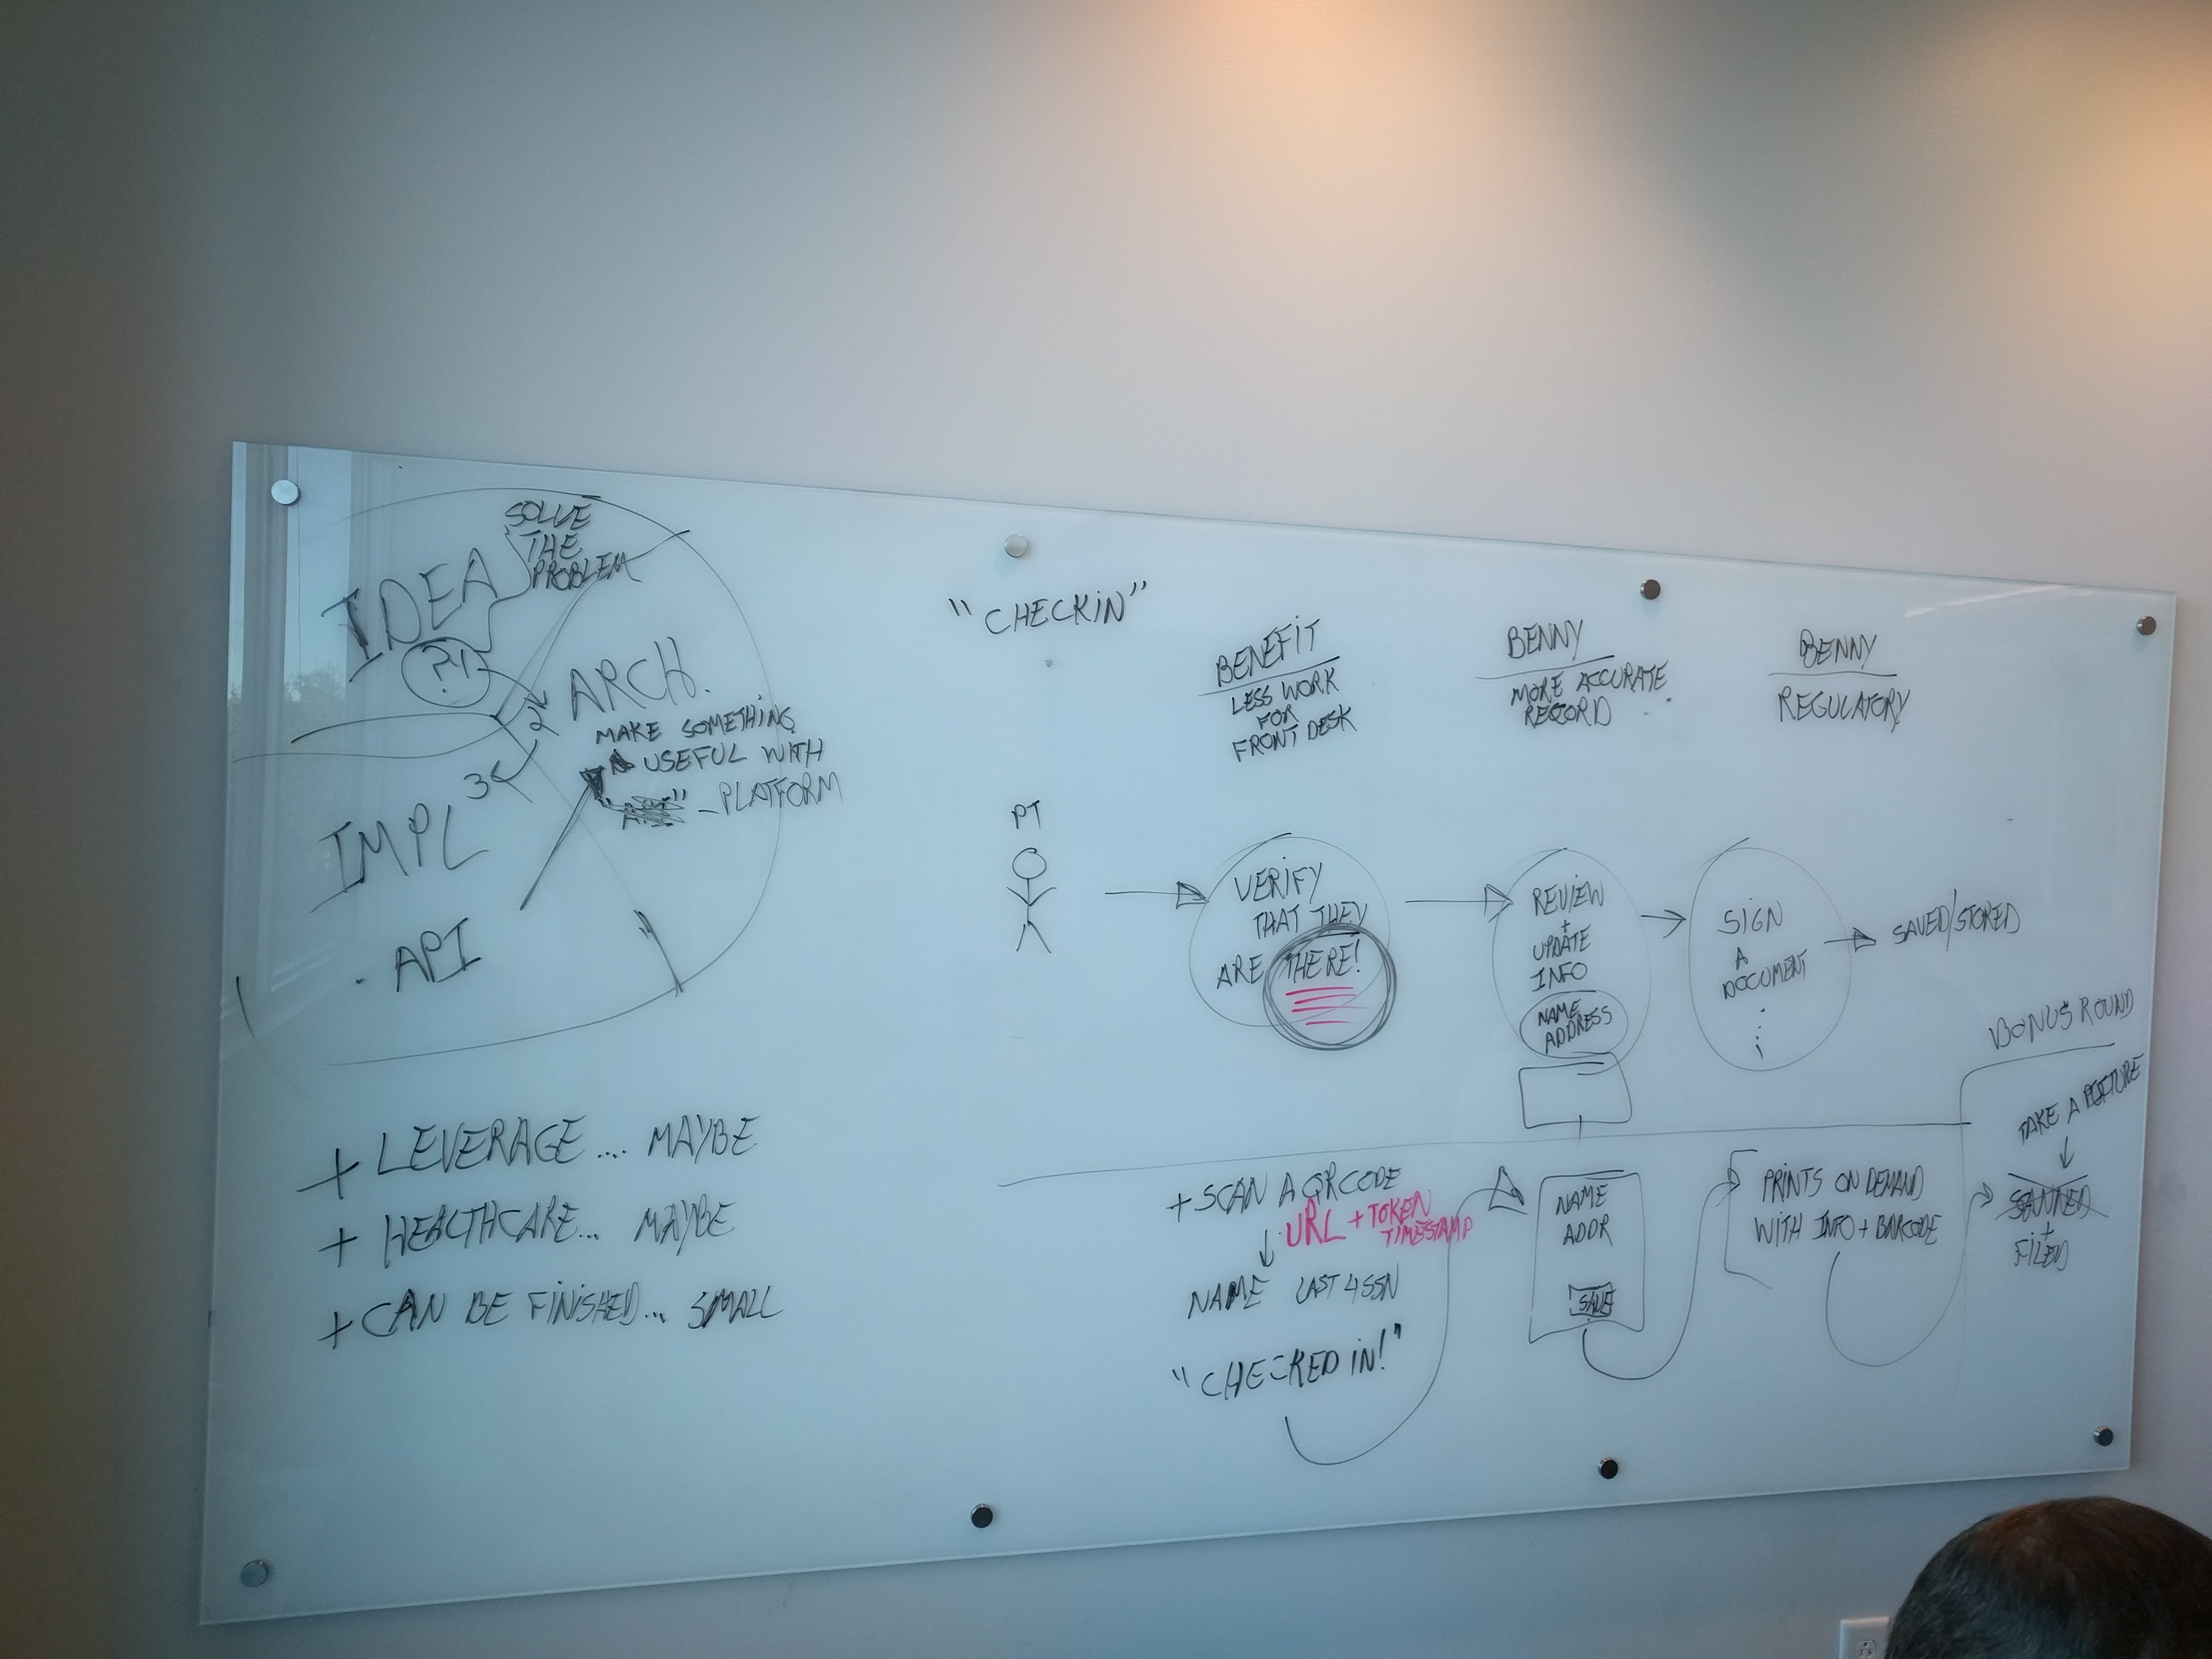 IDEA
SOLVE
THE
PROBLEM
?!
2
ARCH.
MAKE SOMETHING
USEFUL WITH
" " - PLATFORM
3
IMPL
. API
+ LEVERAGE.... MAYBE
+ HEALTHCARE... MAYBE
+ CAN BE FINISHED... SMALL
"CHECKIN"
BENEFIT
LESS WORK
FOR
FRONT DESK
BENNY
MORE ACCURATE
RECORD
BENNY
REGULATORY
PT
VERIFY
THAT THEY
ARE THERE!
REVIEW
+
UPDATE
INFO
NAME
ADDRESS
SIGN
A
DOCUMENT
SAVED/STORED
+ SCAN A QR CODE
URL + TOKEN
TIMESTAMP
NAME LAST 4 SSN
"CHECKED IN!"
NAME
ADDR
SAVE
PRINTS ON DEMAND
WITH INFO + BARCODE
BONUS ROUND
TAKE A PICTURE
SCANNED
+
FILED